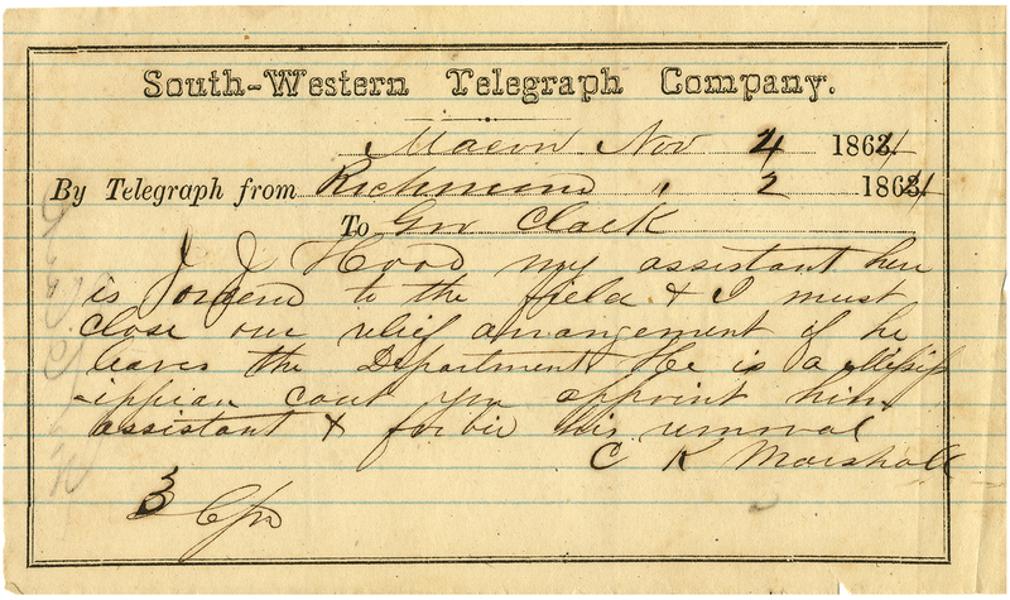 South-Western Telegraph Company.
Macon Nov 4 1864
By Telegraph from Richmond " 2 1864
To Gov Clark
J J Hood my assistant here
is orderd to the field & I must
close our relief arrangement if he
leaves the Department He is a Missip
-ippian cant you appoint him
assistant & forbid his removal
C K Marshall
3